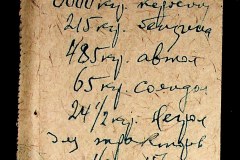 0000 кгр. керосин
215 кгр. бензина
485 кгр. автол
65 кгр. солидол
24 1/2 кгр. нигрол
для тракторов